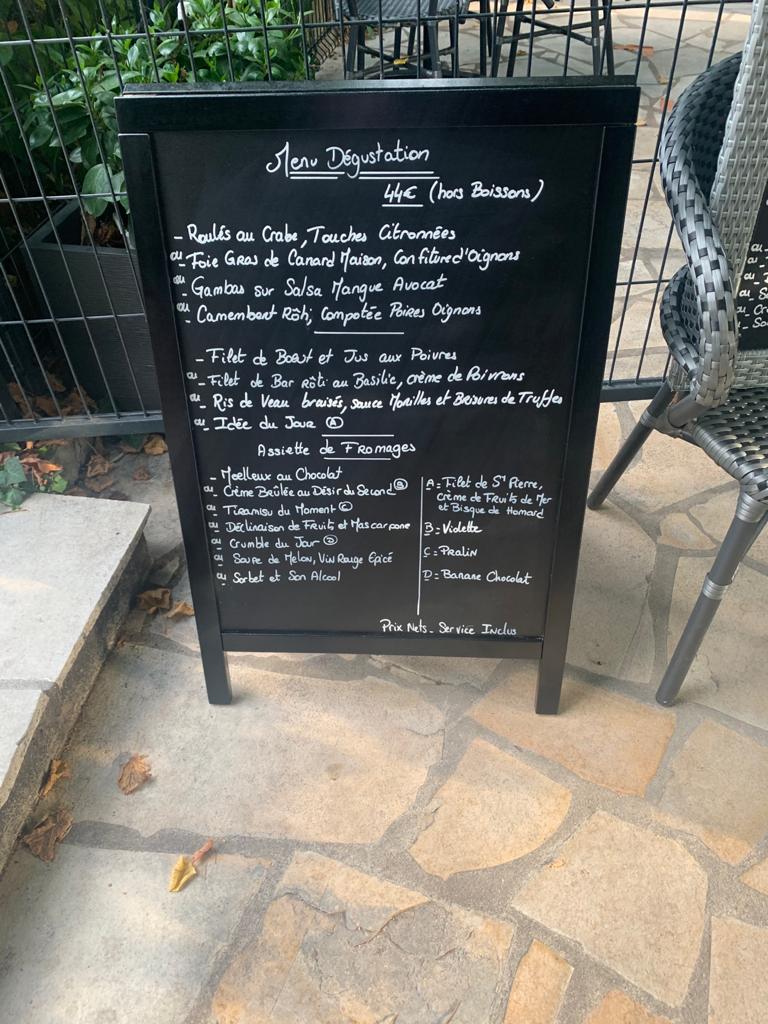 Menu Dégustation
44€ (hors Boissons)
- Roulés au Crabe, Touches Citronnées
ou - Foie Gras de Canard Maison, Confiture d'Oignons
ou - Gambas sur Salsa Mangue Avocat
ou - Camembert Rôti, Compotée Poires Oignons
- Filet de Bœuf et Jus aux Poivres
ou - Filet de Bar rôti au Basilic, crème de Poivrons
ou - Ris de Veau braisés, sauce Morilles et Brisures de Truffes
ou - Idée du Jour (A)
Assiette de Fromages
- Moelleux au Chocolat
ou - Crème Brûlée au Désir du Second (B)
ou - Tiramisu du Moment (C)
ou - Déclinaison de Fruits et Mascarpone
ou - Crumble du Jour (D)
ou - Soupe de Melon, Vin Rouge Epicé
ou - Sorbet et Son Alcool
A = Filet de St Pierre,
crème de Fruits de Mer
et Bisque de Homard
B = Violette
C = Pralin
D = Banane Chocolat
Prix Nets - Service Inclus